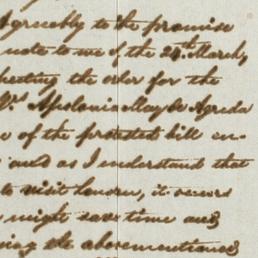 Agreeably to the promise
note to me of the 24th March,
the order for the
Mrs Apolonia May de Agreda
of the protested bill en-
and as I understand that
to visit London, it occurs
might save time and
the abovementioned